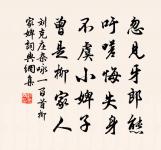 忽見牙郎態
吁嗟悔失身
不虞小婢子
曾是柳家人
劉克庄雜咏一百首柳
家婢詞典網集